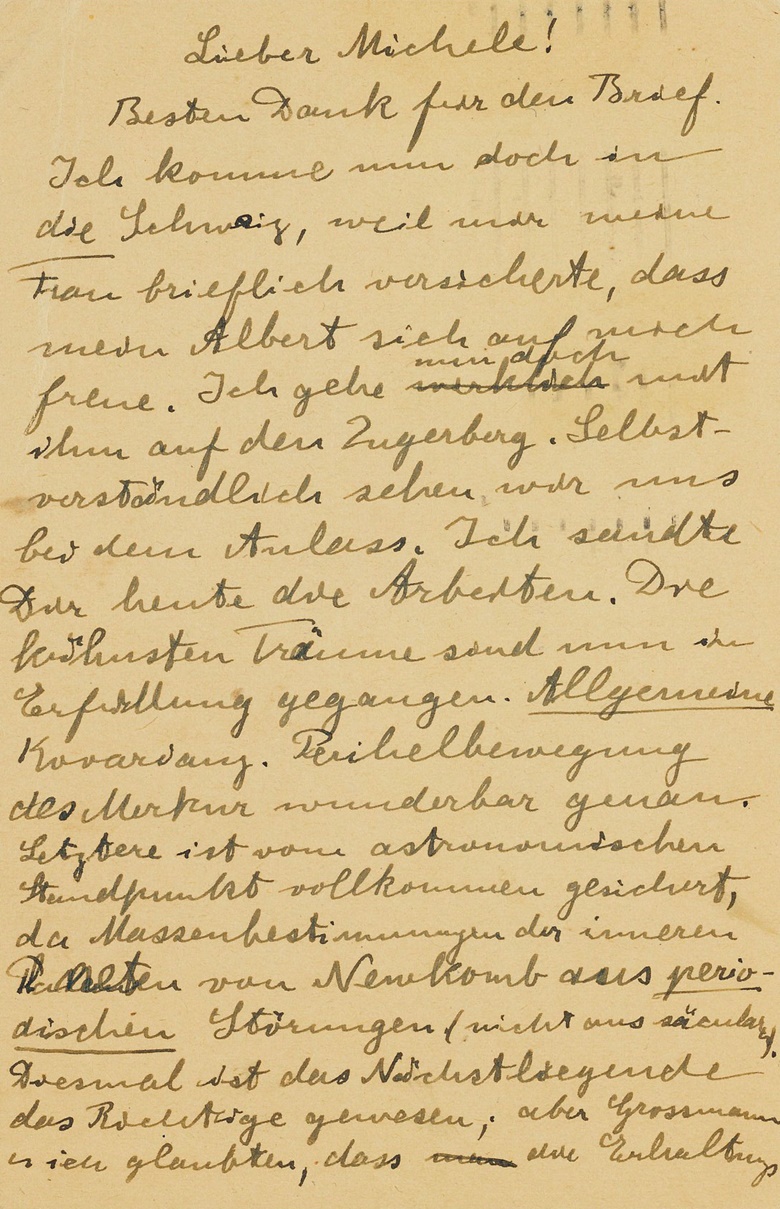 Lieber Michele!
Besten Dank für den Brief.
Ich komme nun doch in
die Schweiz, weil mir meine
Frau brieflich versicherte, dass
mein Albert sich auf mich
freue. Ich gehe nun doch wirklich mit
ihm auf den Zugerberg. Selbst-
verständlich sehen wir uns
bei dem Anlass. Ich sandte
Dir heute die Arbeiten. Die
kühnsten Träume sind nun in
Erfüllung gegangen. Allgemeine
Kovarianz. Perihelbewegung
des Merkur wunderbar genau.
Letztere ist vom astronomischen
Standpunkt vollkommen gesichert,
da Massenbestimmungen der inneren
Planeten von Newkomb aus perio-
dischen Störungen (nicht aus säcularen).
Diesmal ist das Nächstliegende
das Richtige gewesen; aber Grossmann
u ich glaubten, dass man die Erhaltungs